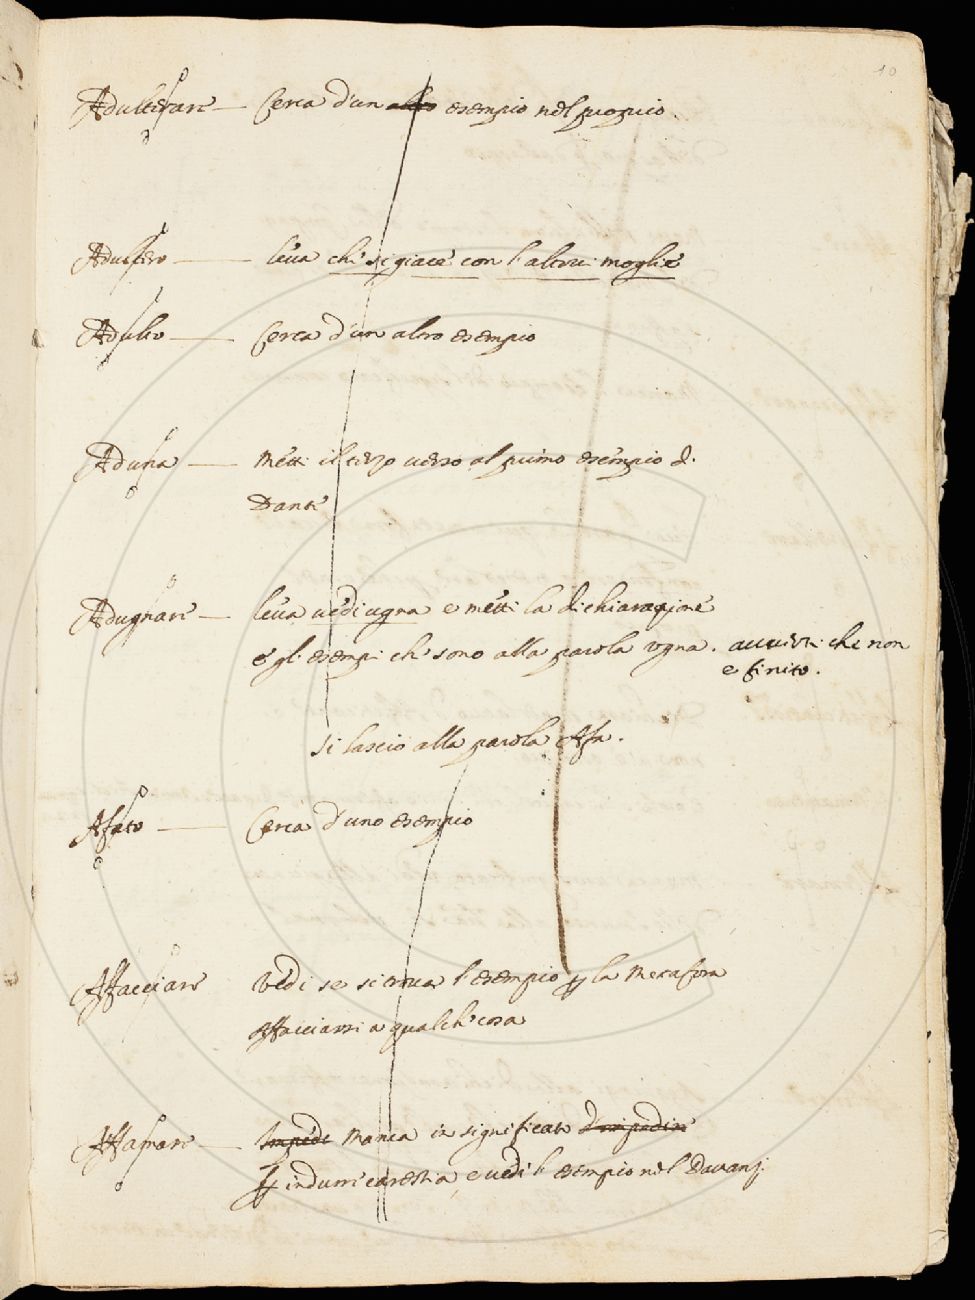 10
Adulterare — Cerca d'un altro esempio nel proprio.
Adultero — leva chi si giace con l'altrui moglie
Adulto — Cerca d'un altro esempio
Aduna — Metti il terzo verso al primo esempio di
Dante
Adugnare — leva vedi ugna e metti la dichiarazione
e gl' esempi che sono alla parola vgna. avverti che non
e finito.
si lasciò alla parola Afa.
Afato — Cerca d'uno esempio
Affacciare Vedi se si trova l'esempio p la Metafora
Affacciarsi a qualche cosa
Affamare — Impedi Manca in significato d'impedire
p indurre carestia, e vedi l'esempio nel Davanz.